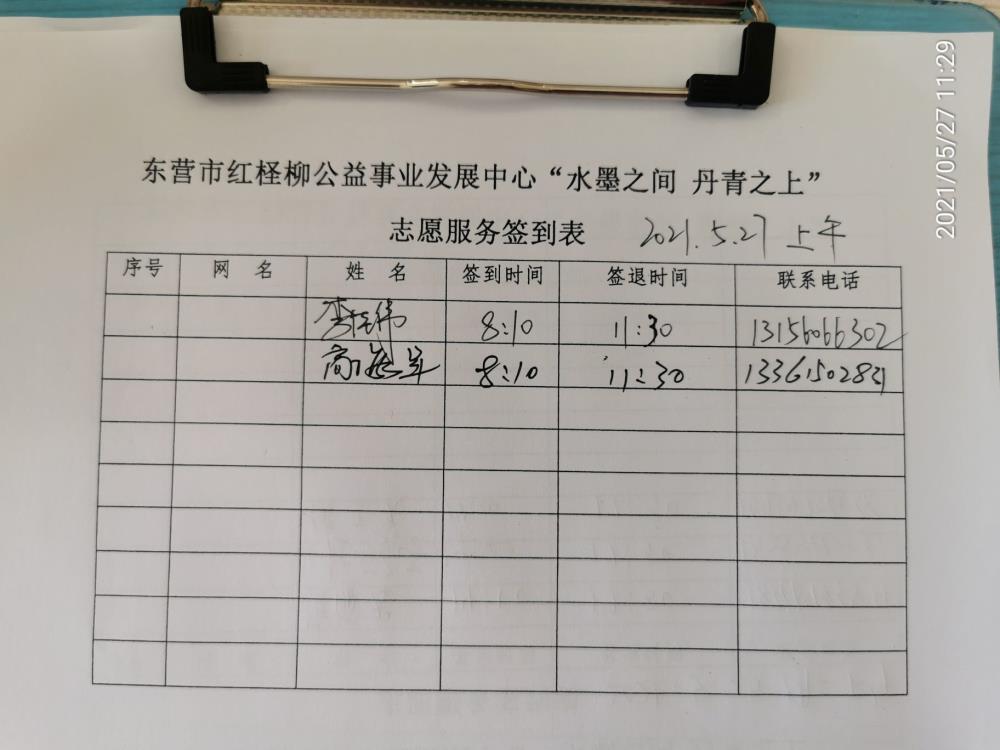 东营市红柽柳公益事业发展中心“水墨之间 丹青之上”
志愿服务签到表 2021.5.27 上午
序号 网 名 姓 名 签到时间 签退时间 联系电话
8:10 11:30 13156066302
8:10 11:30 13361502821
2021/05/27 11:29